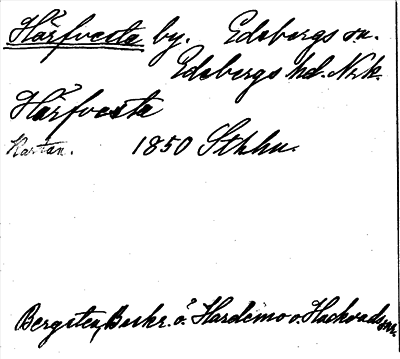 Härfvesta by. Edsbergs sn.
Edsbergs hd. Nrk.
Härfvesta
Kartan. 1850 Sthhu.
Bergsten, Beskr. ö. Hardemo o. Hackvads snr.